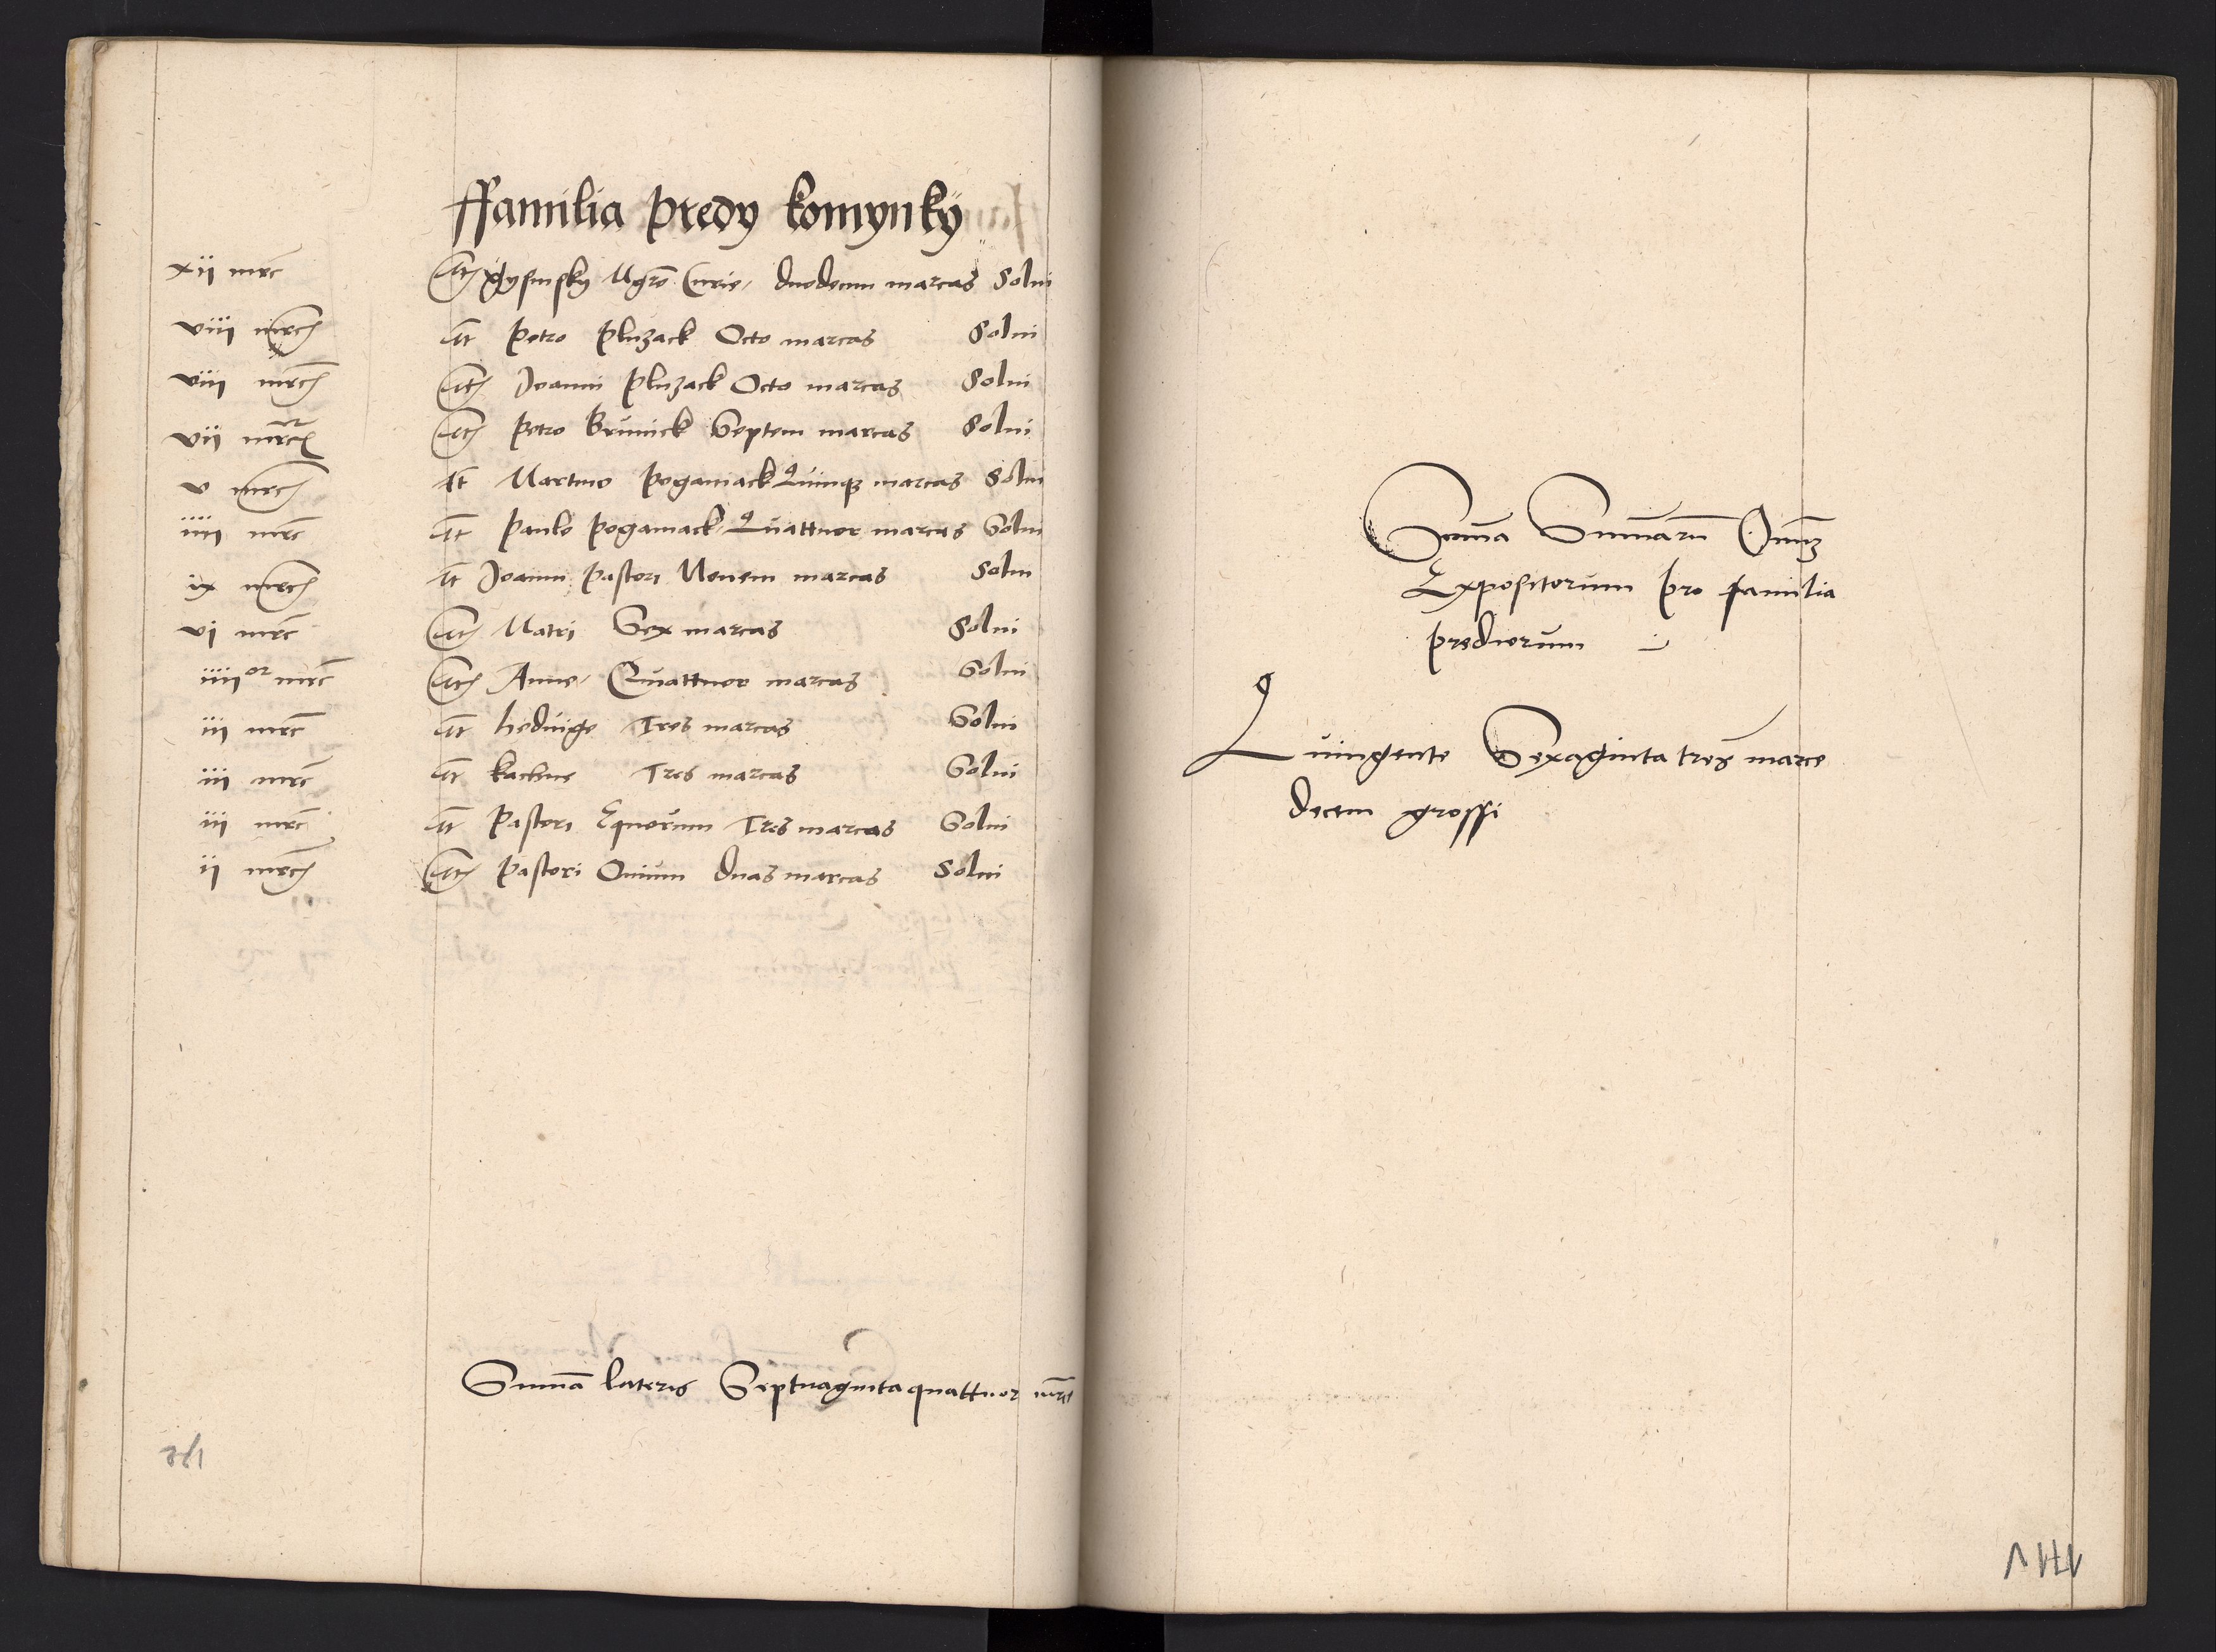 ffamilia predy komynky
xii mrc It Gysinsky Mgro Curie, duodecim marcas Solui
viii mrc It Petro Pluzack Octo marcas Solui
viii mrc It Joanni Pluzack Octo marcas Solui
vii mrc It Petro Brunick Septem marcas Solui
v mrc It Martino Poganiack Quinqz marcas Solui
iiii mrc It Paulo Poganiack Quattuor marcas Solui
ix mrc It Joanni Pastori Nouem marcas Solui
vi mrc It Matri Sex marcas Solui
iiii or mrc It Anne, Quattuor marcas Solui
iii mrc It heduige Tres marcas Solui
iii mrc It kachne Tres marcas Solui
iii mrc It Pastori Equorum Tres marcas Solui
ii mrc It Pastori Ouium duas marcas Solui
Suma lateris Septuaginta quattuor mrc
Suma Sumaru Omnz
Expositorum pro familia
prediorum
Quingente Sexaginta tres marce
decem grossi